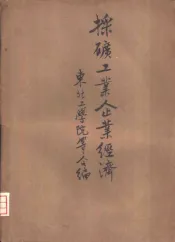 採矿工業企業經濟
東北工學院等合編